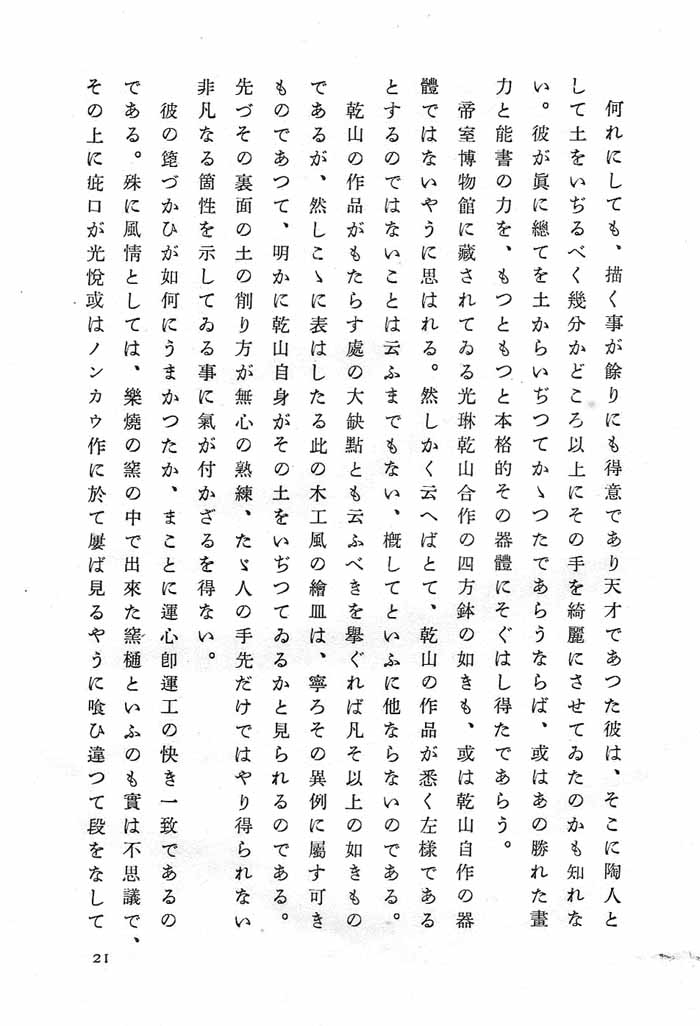 何れにしても、描く事が餘りにも得意であり天才であつた彼は、そこに陶人と
して土をいぢるべく幾分かどころ以上にその手を綺麗にさせてゐたのかも知れな
い。彼が眞に總てを土からいぢつてかゝつたであらうならば、或はあの勝れた畫
力と能書の力を、もつともつと本格的その器體にそぐはし得たであらう。
帝室博物館に藏されてゐる光琳乾山合作の四方鉢の如きも、或は乾山自作の器
體ではないやうに思はれる。然しかく云へばとて、乾山の作品が悉く左樣である
とするのではないことは云ふまでもない、槪してといふに他ならないのである。
乾山の作品がもたらす處の大缺點とも云ふべきを擧ぐれば凡そ以上の如きもの
であるが、然しこゝに表はしたる此の木工風の繪皿は、寧ろその異例に屬す可き
ものであつて、明かに乾山自身がその土をいぢつてゐるかと見られるのである。
先づその裏面の土の削り方が無心の熟練、たゞ人の手先だけではやり得られない
非凡なる箇性を示してゐる事に氣が付かざるを得ない。
彼の箆づかひが如何にうまかつたか、まことに運心卽運工の快き一致であるの
である。殊に風情としては、樂燒の窯の中で出來た窯樋といふのも實は不思議で、
その上に疵口が光悅或はノンカウ作に於て屢ば見るやうに喰ひ違つて段をなして
21